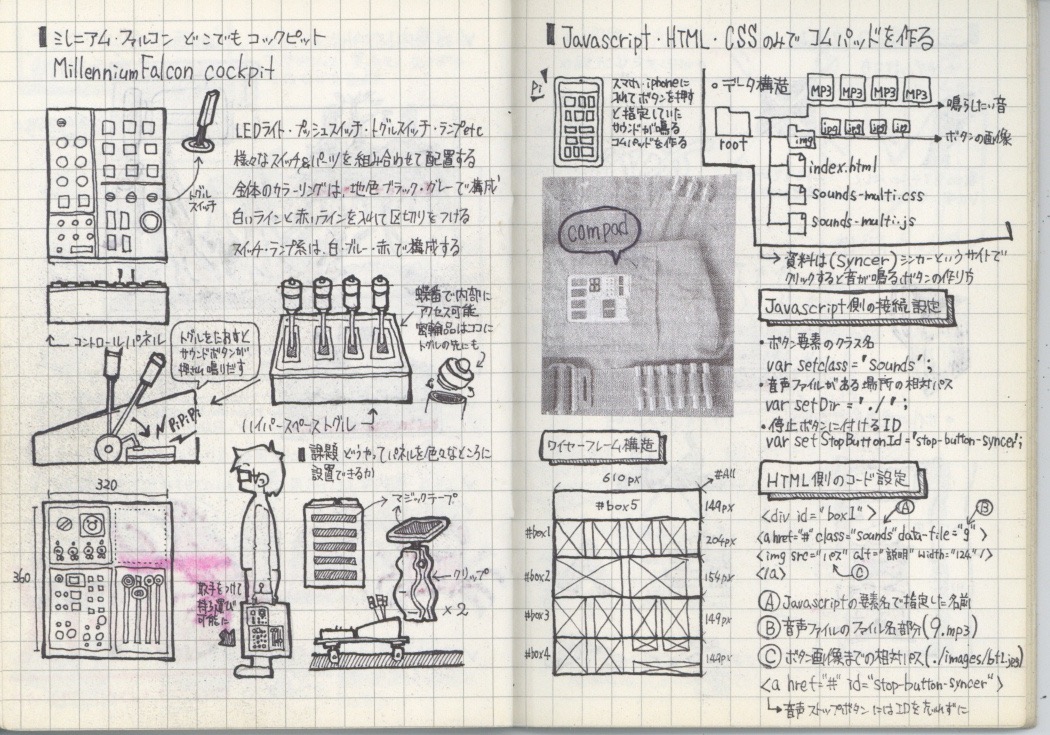 ミレニアム・ファルコン どこでも コックピット
Millennium Falcon cockpit
トグル
スイッチ
LEDライト・プッシュスイッチ・トグルスイッチ・ランプetc
様々なスイッチ&パーツを組み合わせて配置する
全体のカラーリングは、地色ブラック・グレーで構成
白いラインと赤いラインを入れて区切りをつける
スイッチ・ランプ系は、白・ブルー・赤で構成する
コントロールパネル
トグルをたおすと
サウンドボタンが
押され鳴りだす
PiPiPi
蝶番で内部に
アクセス可能
トグルの先にも
ハイパースペーストグル
課題 どうやってパネルを色々なところに
設置できるか
マジックテープ
クリップ
×2
320
360
取手をつけて
持ち運び
可能に
Javascript・HTML・CSSのみで コムパッドを作る
Pi
スマホ・iphoneに
入れてボタンを押す
と指定していた
サウンドが鳴る
コムパッドを作る
・データ構造
root
MP3 MP3 MP3 MP3
鳴らしたい音
img
jpg jpg jpg jpg
ボタンの画像
index.html
sounds-multi.css
sounds-multi.js
資料は(Syncer)シンカーというサイトで
クリックすると音が鳴るボタンの作り方
compad
Javascript側の接続設定
・ボタン要素のクラス名
var setclass = 'Sounds';
・音声ファイルがある場所の相対パス
var setDir = './';
・停止ボタンに付けるID
var set StopButtonId = 'stop-button-syncer';
ワイヤーフレーム構造
610px
#All
#box5
149px
#box1
204px
#box2
154px
#box3
149px
#box4
149px
HTML側のコード設定
<div id="box1">
A
B
<a href="#" class="sounds" data-file="9">
<img src="" alt="説明" width="124"/>
</a>
C
A Javascriptの要素名で指定した名前
B 音声ファイルのファイル名部分(9.mp3)
C ボタン画像までの相対パス(./images/bt1.jpg)
<a href="#" id="stop-button-syncer">
音声ストップボタンにはIDを忘れずに